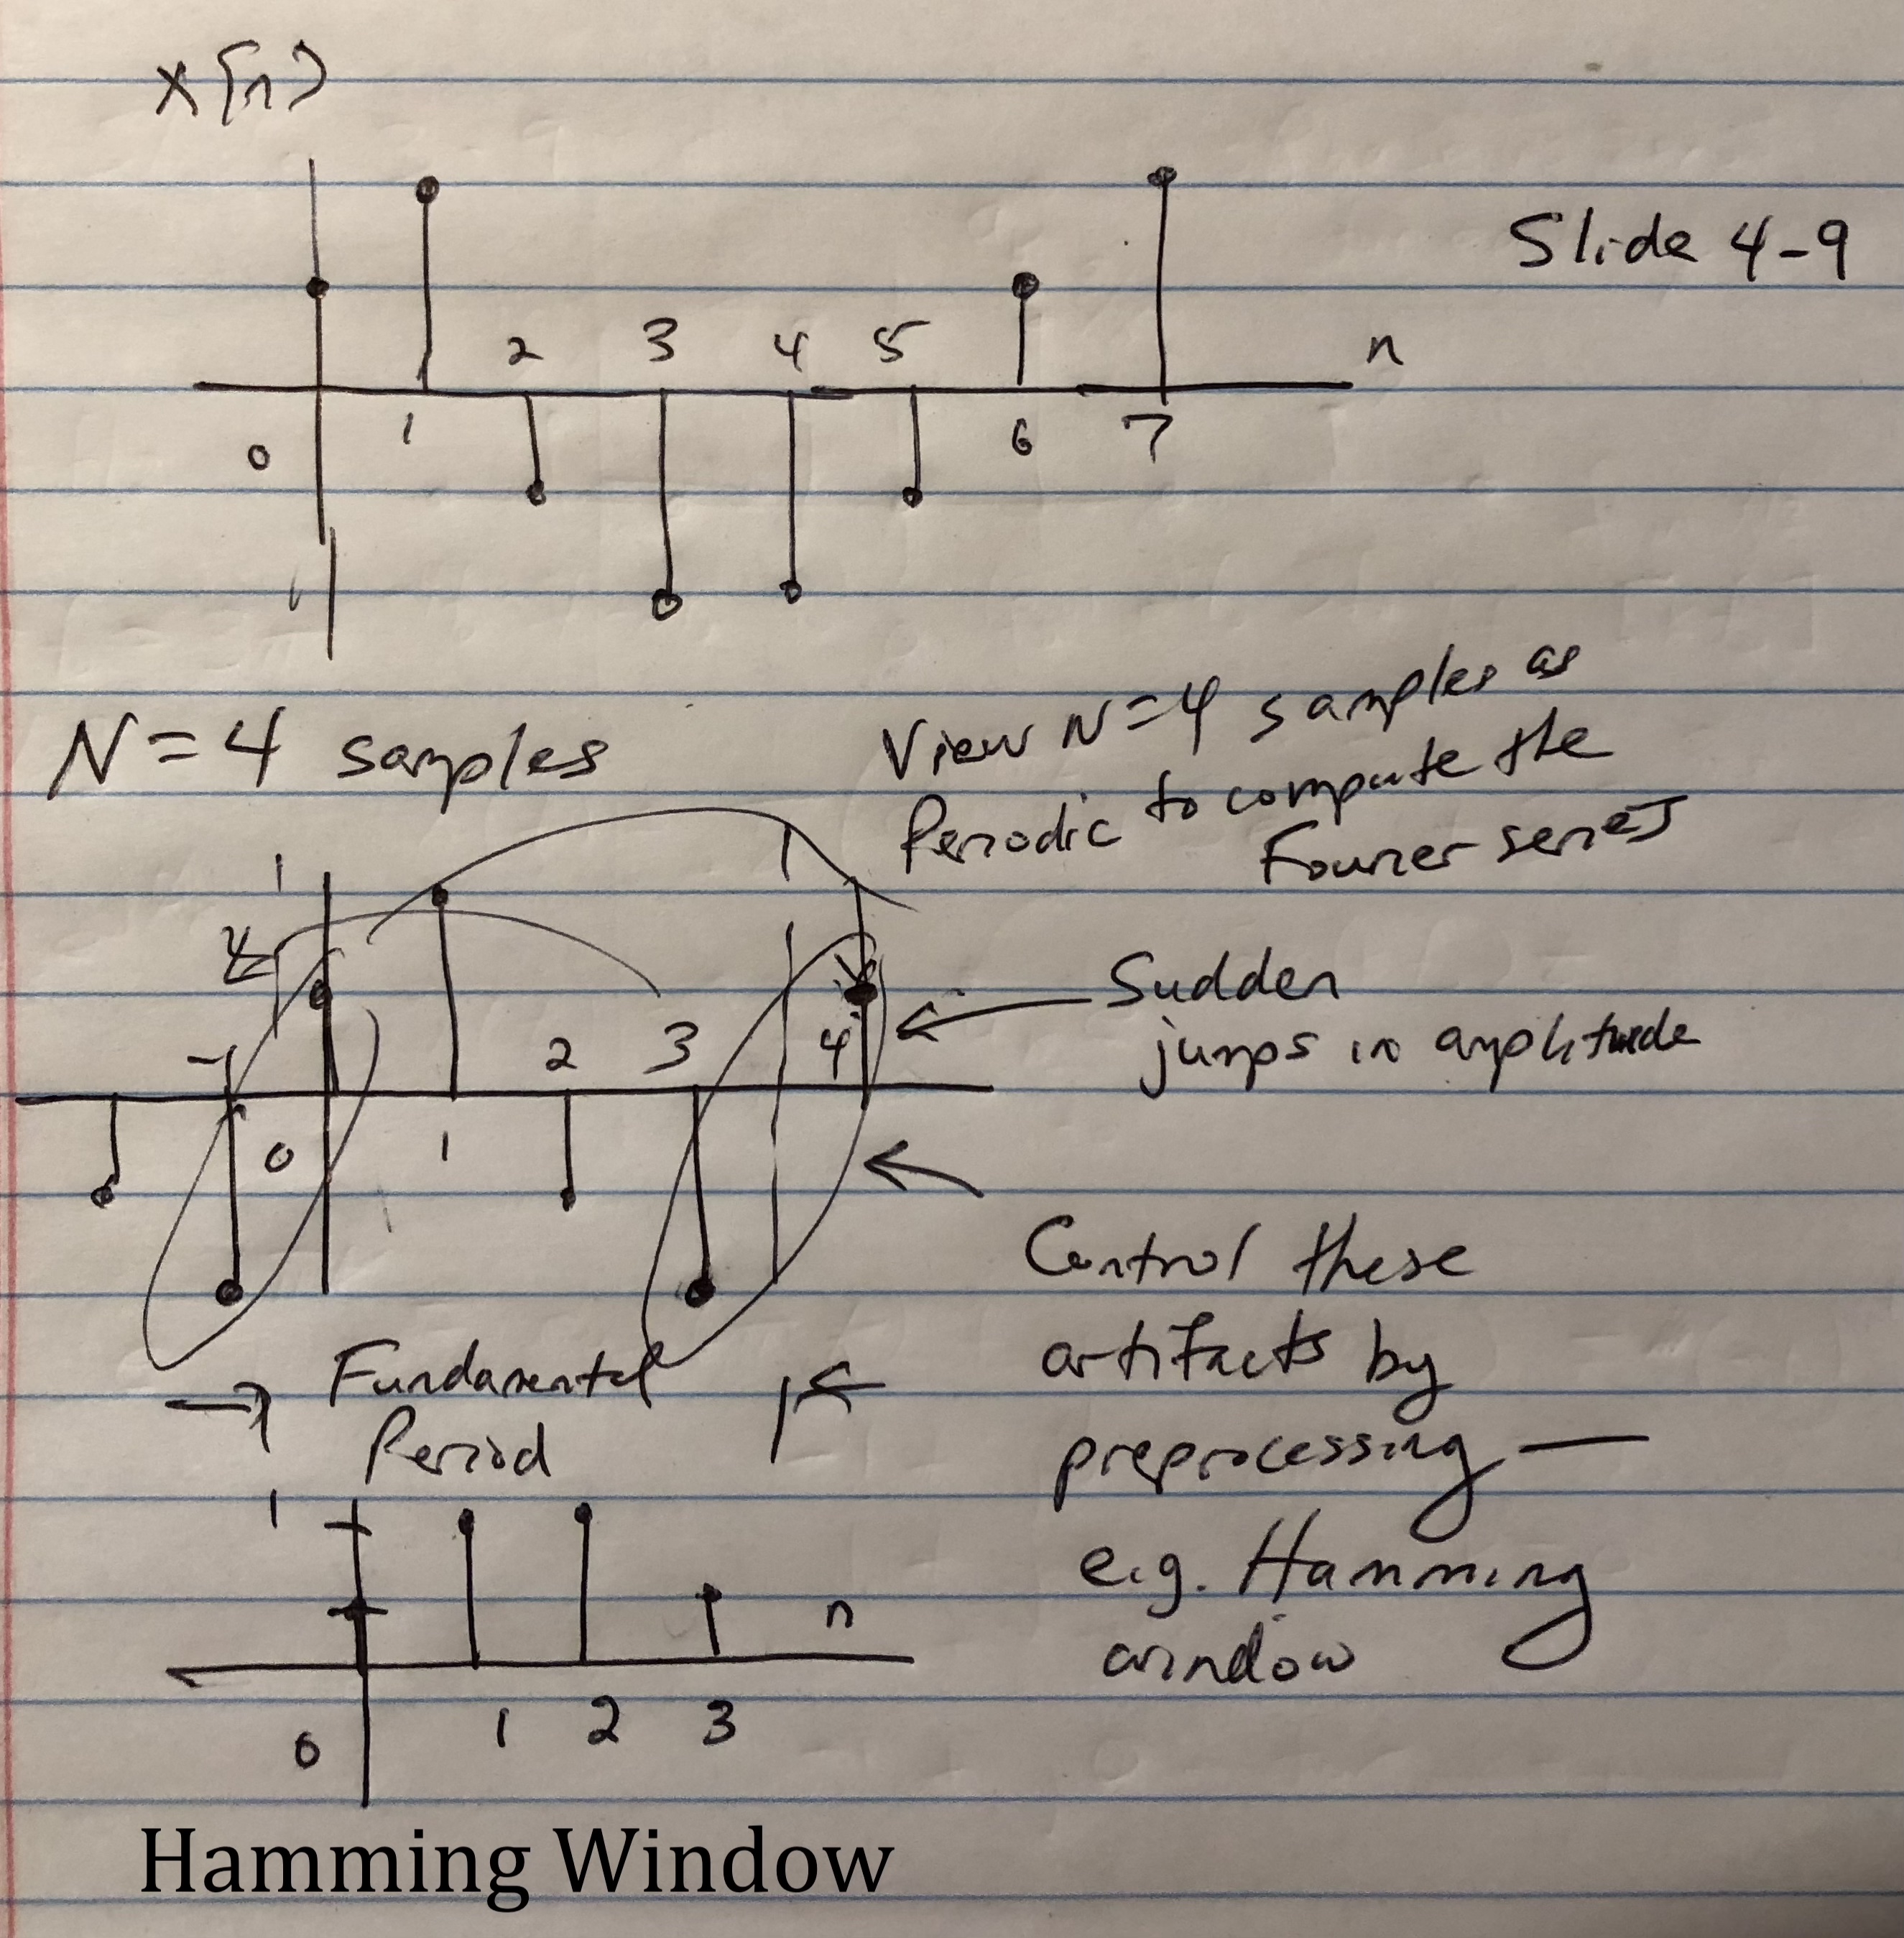 x[n]
Slide 4-9
2 3 4 5 n
0 1 6 7
N=4 samples
View N=4 samples as
Periodic to compute the
Fourier series
1
-1 2 3 4
0 1
Sudden
jumps in amplitude
Control these
artifacts by
preprocessing —
e.g. Hamming
window
Fundamental
Period
1
n
0 1 2 3
Hamming Window